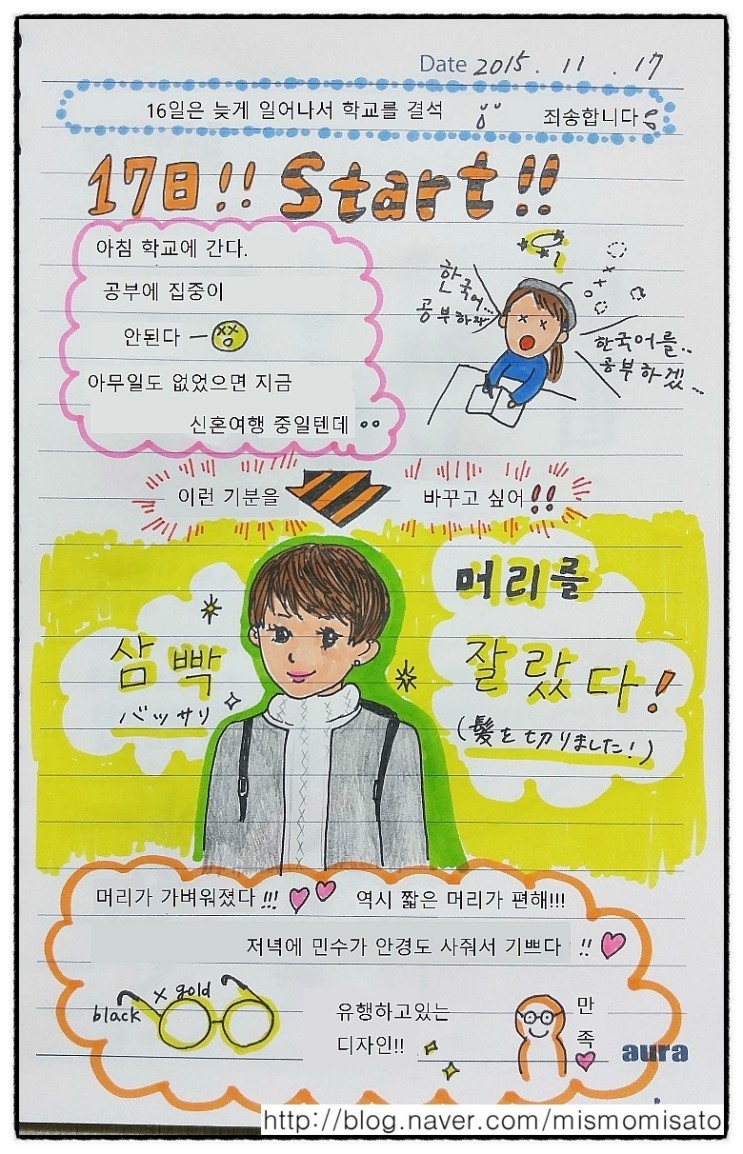 Date 2015. 11. 17
16일은 늦게 일어나서 학교를 결석
죄송합니다
17日!! Start!!
아침 학교에 간다.
공부에 집중이
안된다
아무일도 없었으면 지금
신혼여행 중일텐데
한국어...
공부하자
한국어를..
공부하겠...
이런 기분을
바꾸고 싶어!!
머리를
잘랐다!
(髪を切りました!)
삼빡
バッサリ
머리가 가벼워졌다!!!
역시 짧은 머리가 편해!!!
저녁에 민수가 안경도 사줘서 기쁘다!!
black x gold
유행하고있는
디자인!!
만
족
aura
http://blog.naver.com/mismomisato